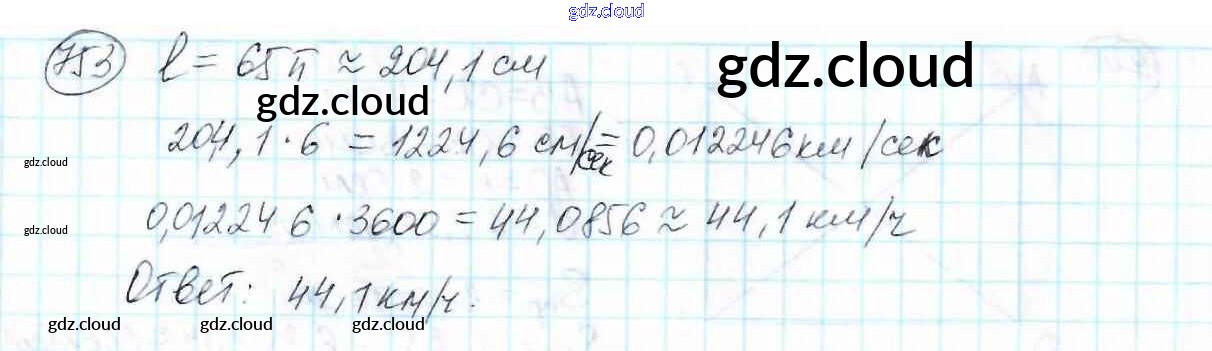 gdz.cloud
753 l = 65π ≈ 204,1 см
gdz.cloud gdz.cloud
204,1 · 6 = 1224,6 см/сек = 0,012246 км/сек
gdz.cloud
0,012246 · 3600 = 44,0856 ≈ 44,1 км/ч
gdz.cloud
Ответ: 44,1 км/ч.
gdz.cloud gdz.cloud gdz.cloud